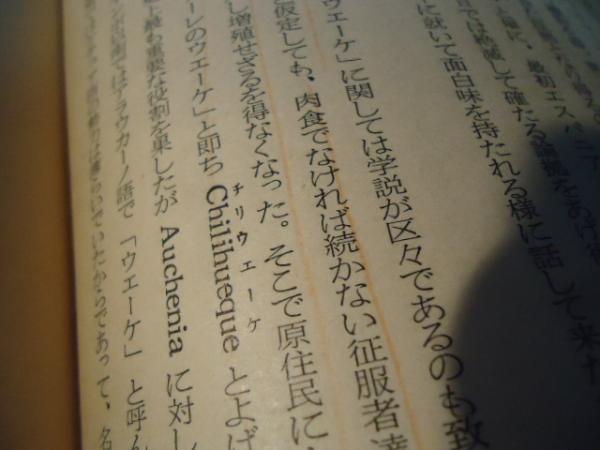 最初エスパニア
では
して確たる論拠をあげ
に就いて面白味を持たれる様に話して来た
ウエーケ」に関しては学説が区々であるのも致
仮定しても、肉食でなければ続かない征服者達
し増殖せざるを得なくなった。そこで原住民に
ーレのウエーケ」と即ち Chilihueque とよば
チリウエーケ
最も重要な役割を果したが Auchenia に対し
ではアラウカーノ語で「ウエーケ」と呼ん
いていたからであって、名